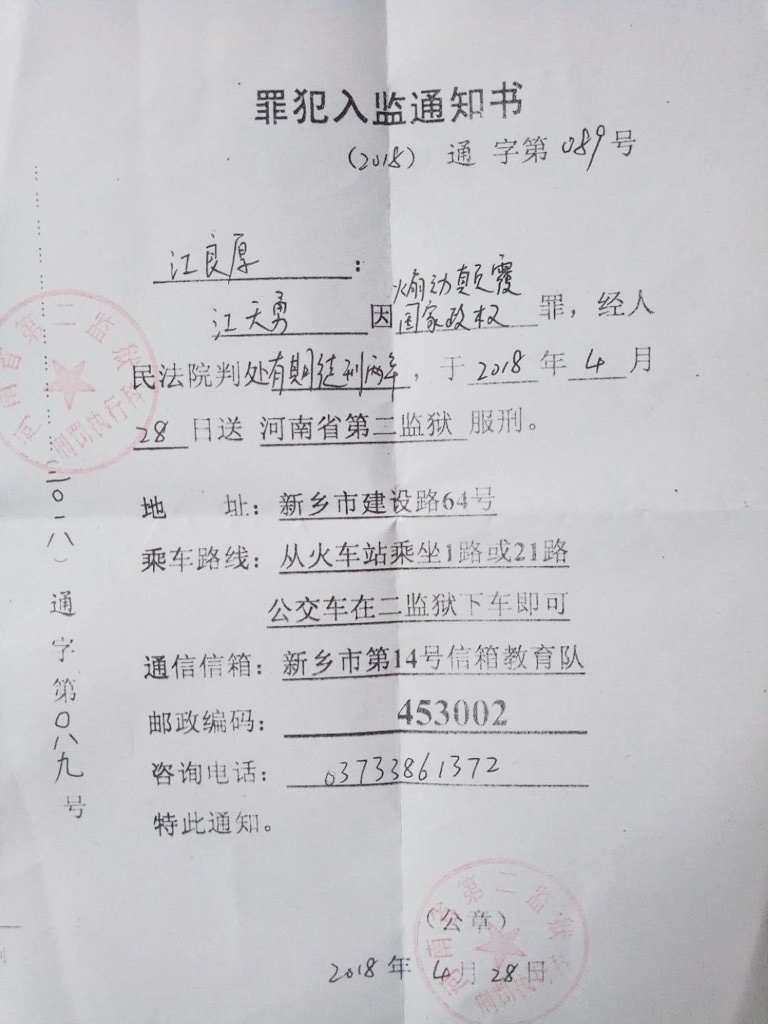 罪犯入监通知书
(2018) 通 字第 089 号
江良厚 :
江天勇 因 煽动颠覆
国家政权 罪，经人
民法院判处有期徒刑两年，于 2018 年 4 月
28 日送 河南省第二监狱 服刑。
地 址：新乡市建设路64号
乘车路线：从火车站乘坐1路或21路
公交车在二监狱下车即可
通信信箱：新乡市第14号信箱教育队
邮政编码：453002
咨询电话：03733861372
特此通知。
(公章)
2018 年 4 月 28 日
(二〇一八) 通字第〇八九号
河南省第二监狱
刑罚执行科
河南省第二监狱
刑罚执行科